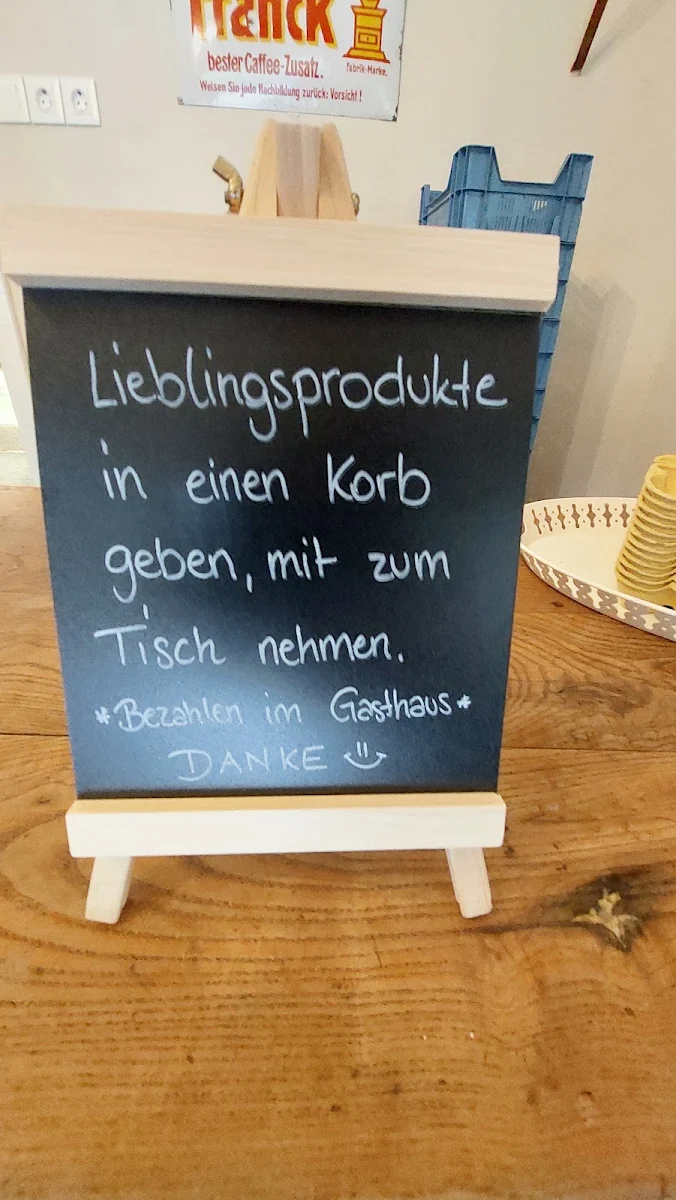 Franck
bester Caffee-Zusatz.
Fabrik-Marke.
Weisen Sie jede Nachbildung zurück: Vorsicht!
Lieblingsprodukte
in einen Korb
geben, mit zum
Tisch nehmen.
*Bezahlen im Gasthaus*
DANKE